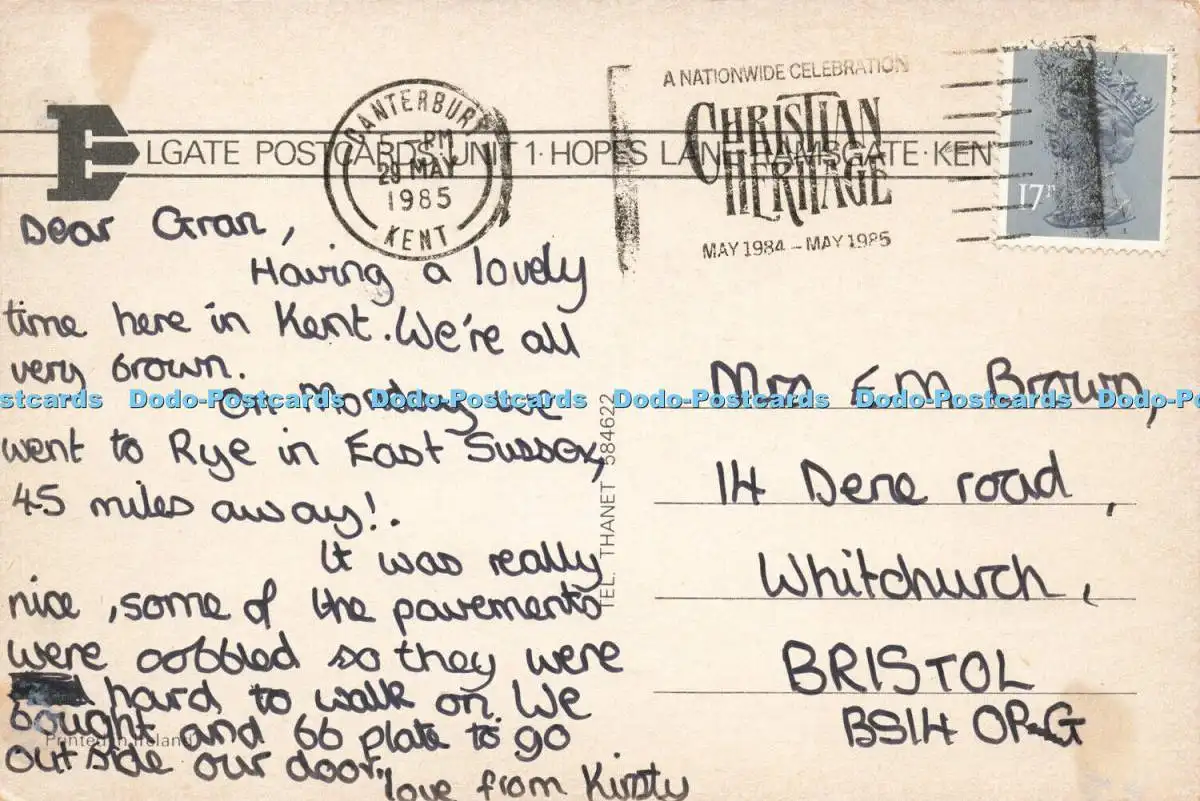 A NATIONWIDE CELEBRATION
CHRISTIAN
HERITAGE
MAY 1984 – MAY 1985
CANTERBURY
5 - PM
29 MAY
1985
KENT
17P
E LGATE POSTCARDS · UNIT 1 · HOPES LANE · RAMSGATE · KENT
Dear Gran,
Having a lovely
time here in Kent. We're all
very brown.
On Monday we
went to Rye in East Sussex,
45 miles away!.
It was really
nice, some of the pavements
were cobbled so they were
hard to walk on. We
bought and 66 plate to go
outside our door.
love from Kirsty
Printed in Ireland
TEL. THANET 584622
Mrs E M Brown,
14 Dene road,
Whitchurch,
BRISTOL
BS14 OPG
stcards Dodo-Postcards Dodo-Postcards Dodo-Postcards Dodo-Postcards Dodo-Po